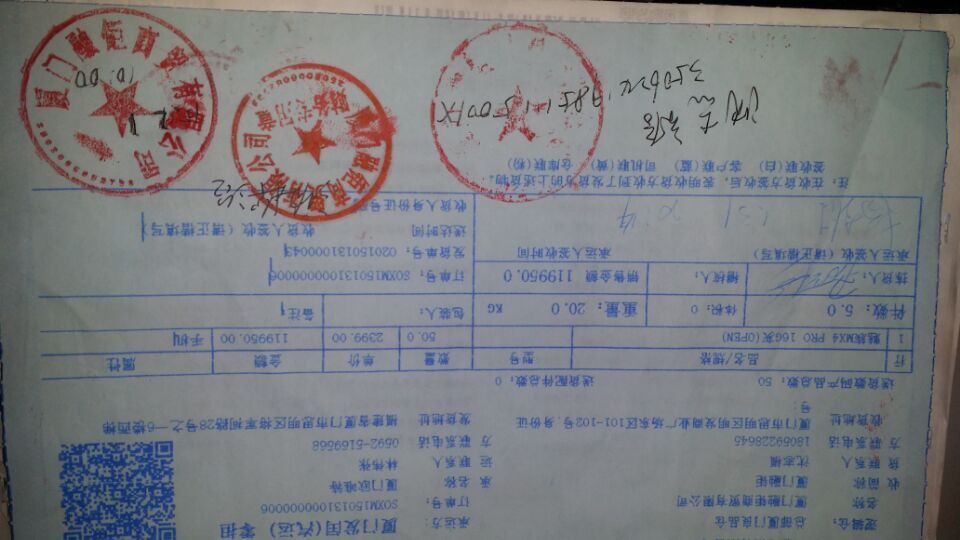 逻辑仓: 总部厦门良品仓 承运方: 厦门发司(汽运) 零担
名称 厦门融钜商贸有限公司 订单号: SOXM150131000000006
收 简称 厦门融钜 承 名称 厦门欧唯特
货 联系人 沈宏福 运 联系人 林伟张
方 联系电话 18059228645 方 联系电话 0592-5169568
收货地址 厦门市思明区明发商业广场东101-102号,身份证 发货地址 福建省厦门市思明区将军祠路28号之一6楼西侧
号:
送货数码产品总数: 50 送货配件总数: 0
行 品名/规格 型号 数量 单价 金额 属性
1 魅族MX4 PRO 16G灰(OPEN) 50.0 2399.00 119950.00 手机
件数: 5.0 体积: 0 重量: 20.0 KG 包装人: 备注:
拣货人: 捕捞人: 销售金额 119950.0 订单号: SOXM150131000000006
发货单号: 0201501310000043
承运人签收(请正楷填写) 承运人签收时间 送达时间 收货人签收(请正楷填写)
1.31 收货人身份证号:
注: 在收货方签收后,表明收货方收到了发货方的上述货物.
签收联(白) 客户联(蓝) 司机联(黄) 仓库联(粉)
厦门融钜商贸有限公司